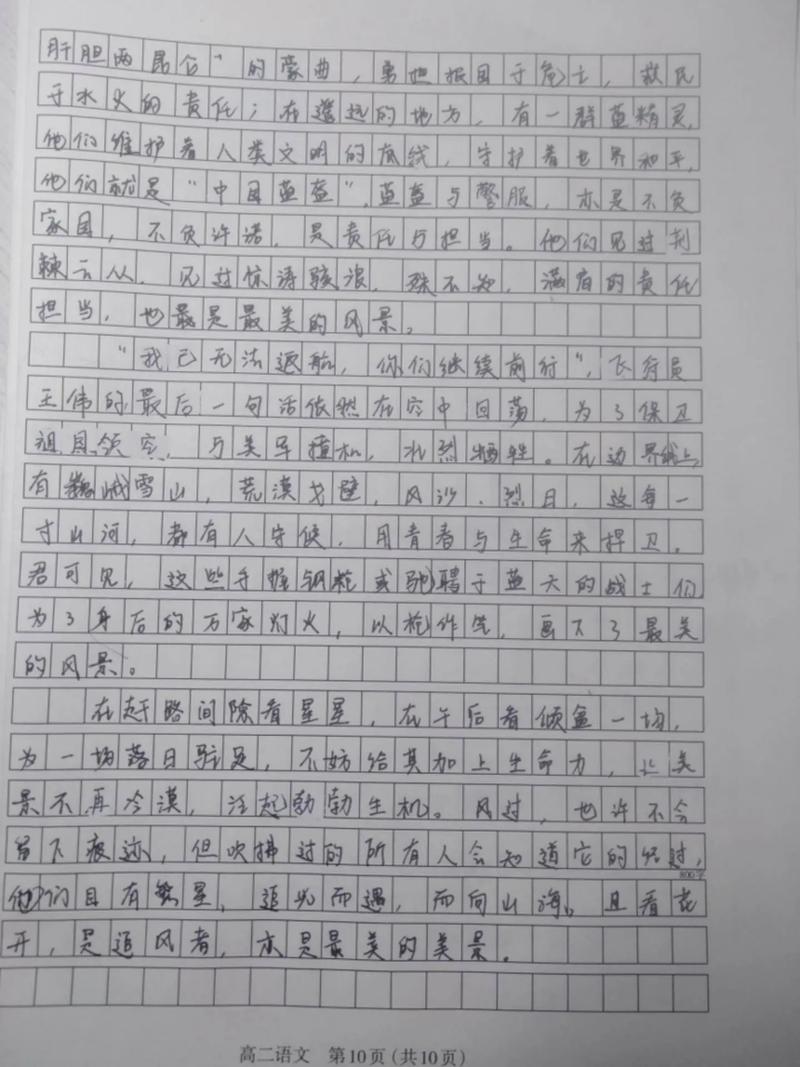 肝胆两昆仑”的豪曲，勇担报国于危亡，救民
于水火的责任；在遥远的地方，有一群蓝精灵，
他们维护着人类文明的底线，守护着世界和平，
他们就是“中国蓝盔”，蓝盔与警服，亦是不负
家国，不负许诺，是责任与担当。他们见过荆
棘云从，见过惊涛骇浪，殊不知，满有的责任
担当，也最是最美的风景。
“我已无法返航，你们继续前行”，飞行员
王伟的最后一句话依然在空中回荡，为了保卫
祖国领空，与美军撞机，壮烈牺牲。在边界线上，
有巍峨雪山，荒漠戈壁，风沙、烈日，这每一
寸山河，都有人守候，用青春与生命来捍卫。
君可见，这些手握钢枪或驰骋于蓝天的战士们
为了身后的万家灯火，以枪作笔，画下了最美
的风景。
在赶路间隙看星星，在午后看倾盆一场，
为一场落日驻足，不妨给其加上生命力，让美
景不再冷漠，泛起勃勃生机。风过，也许不会
留下痕迹，但吹拂过的所有人会知道它的经过，
800字
他们目有繁星，追光而遇，而向山海。且看花
开，是追风者，亦是最美的美景。
高二语文 第10页(共10页)